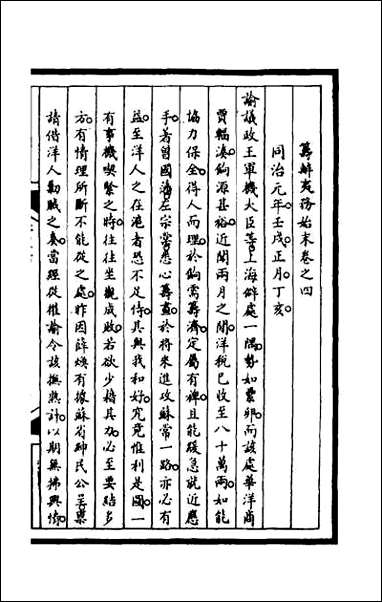 籌辦夷務始末卷之四
同治元年壬戌正月丁亥
諭議政王軍機大臣等上海僻處一隅勢如纍卵而該處華洋商
賈輻湊餉源甚裕近聞兩月之間洋稅已收至八十萬兩如能
協力保全得人而理於餉需籌濟定屬有裨且能緩急就近應
手著曾國藩左宗棠悉心籌畫於將來進攻蘇常一路亦必有
益至洋人之在滬者恐不足恃其與我和好究竟惟利是圖一
有事機喫緊之時往往坐觀成敗若欲少藉其力必至要結多
方有情理所斷不能從之處昨因薛煥有據蘇省紳民公呈稟
請借洋人勦賊之奏當經從權諭令該撫熟計以期無拂輿情